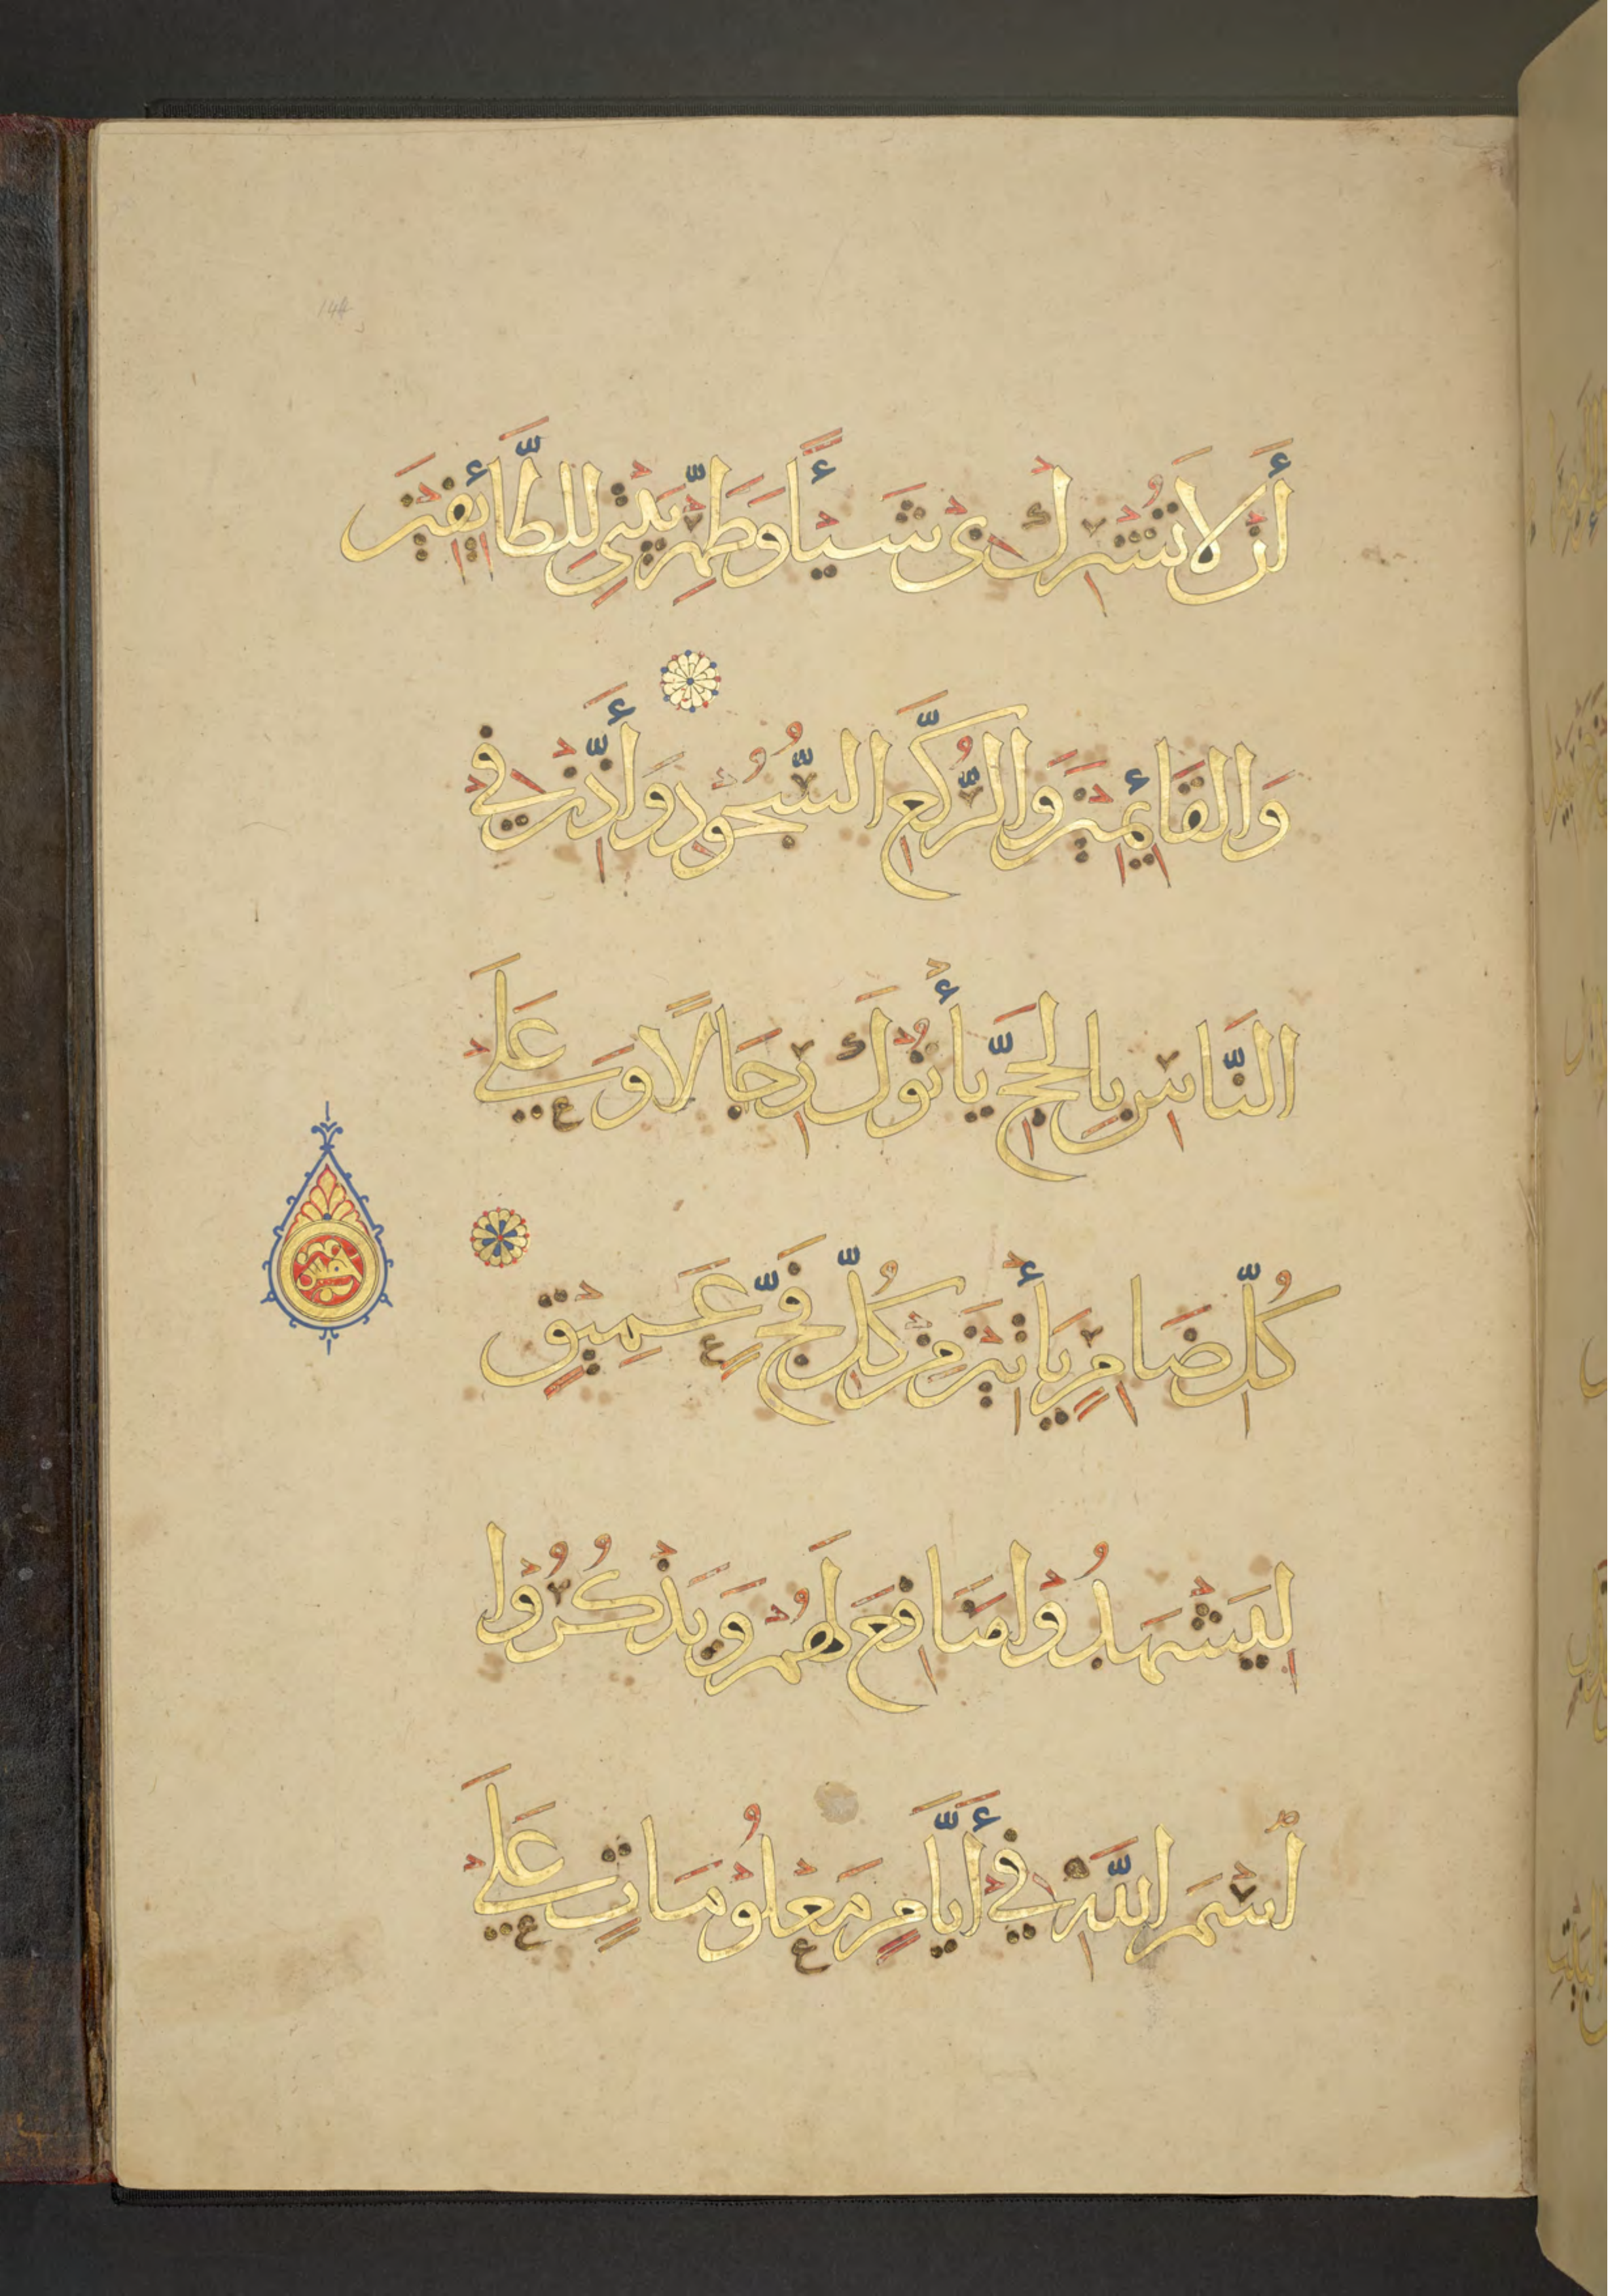 أَن لَا تُشْرِكْ بِى شَيْـًٔا وَطَهِّرْ بَيْتِيَ لِلطَّائِفِينَ
وَالْقَائِمِينَ وَالرُّكَّعِ السُّجُودِ وَأَذِّنْ فِي
النَّاسِ بِالْحَجِّ يَأْتُوكَ رِجَالًا وَعَلَى
كُلِّ ضَامِرٍ يَأْتِينَ مِنْ كُلِّ فَجٍّ عَمِيقٍ
لِيَشْهَدُوا مَنَافِعَ لَهُمْ وَيَذْكُرُوا
اسْمَ اللَّهِ فِي أَيَّامٍ مَعْلُومَاتٍ عَلَى